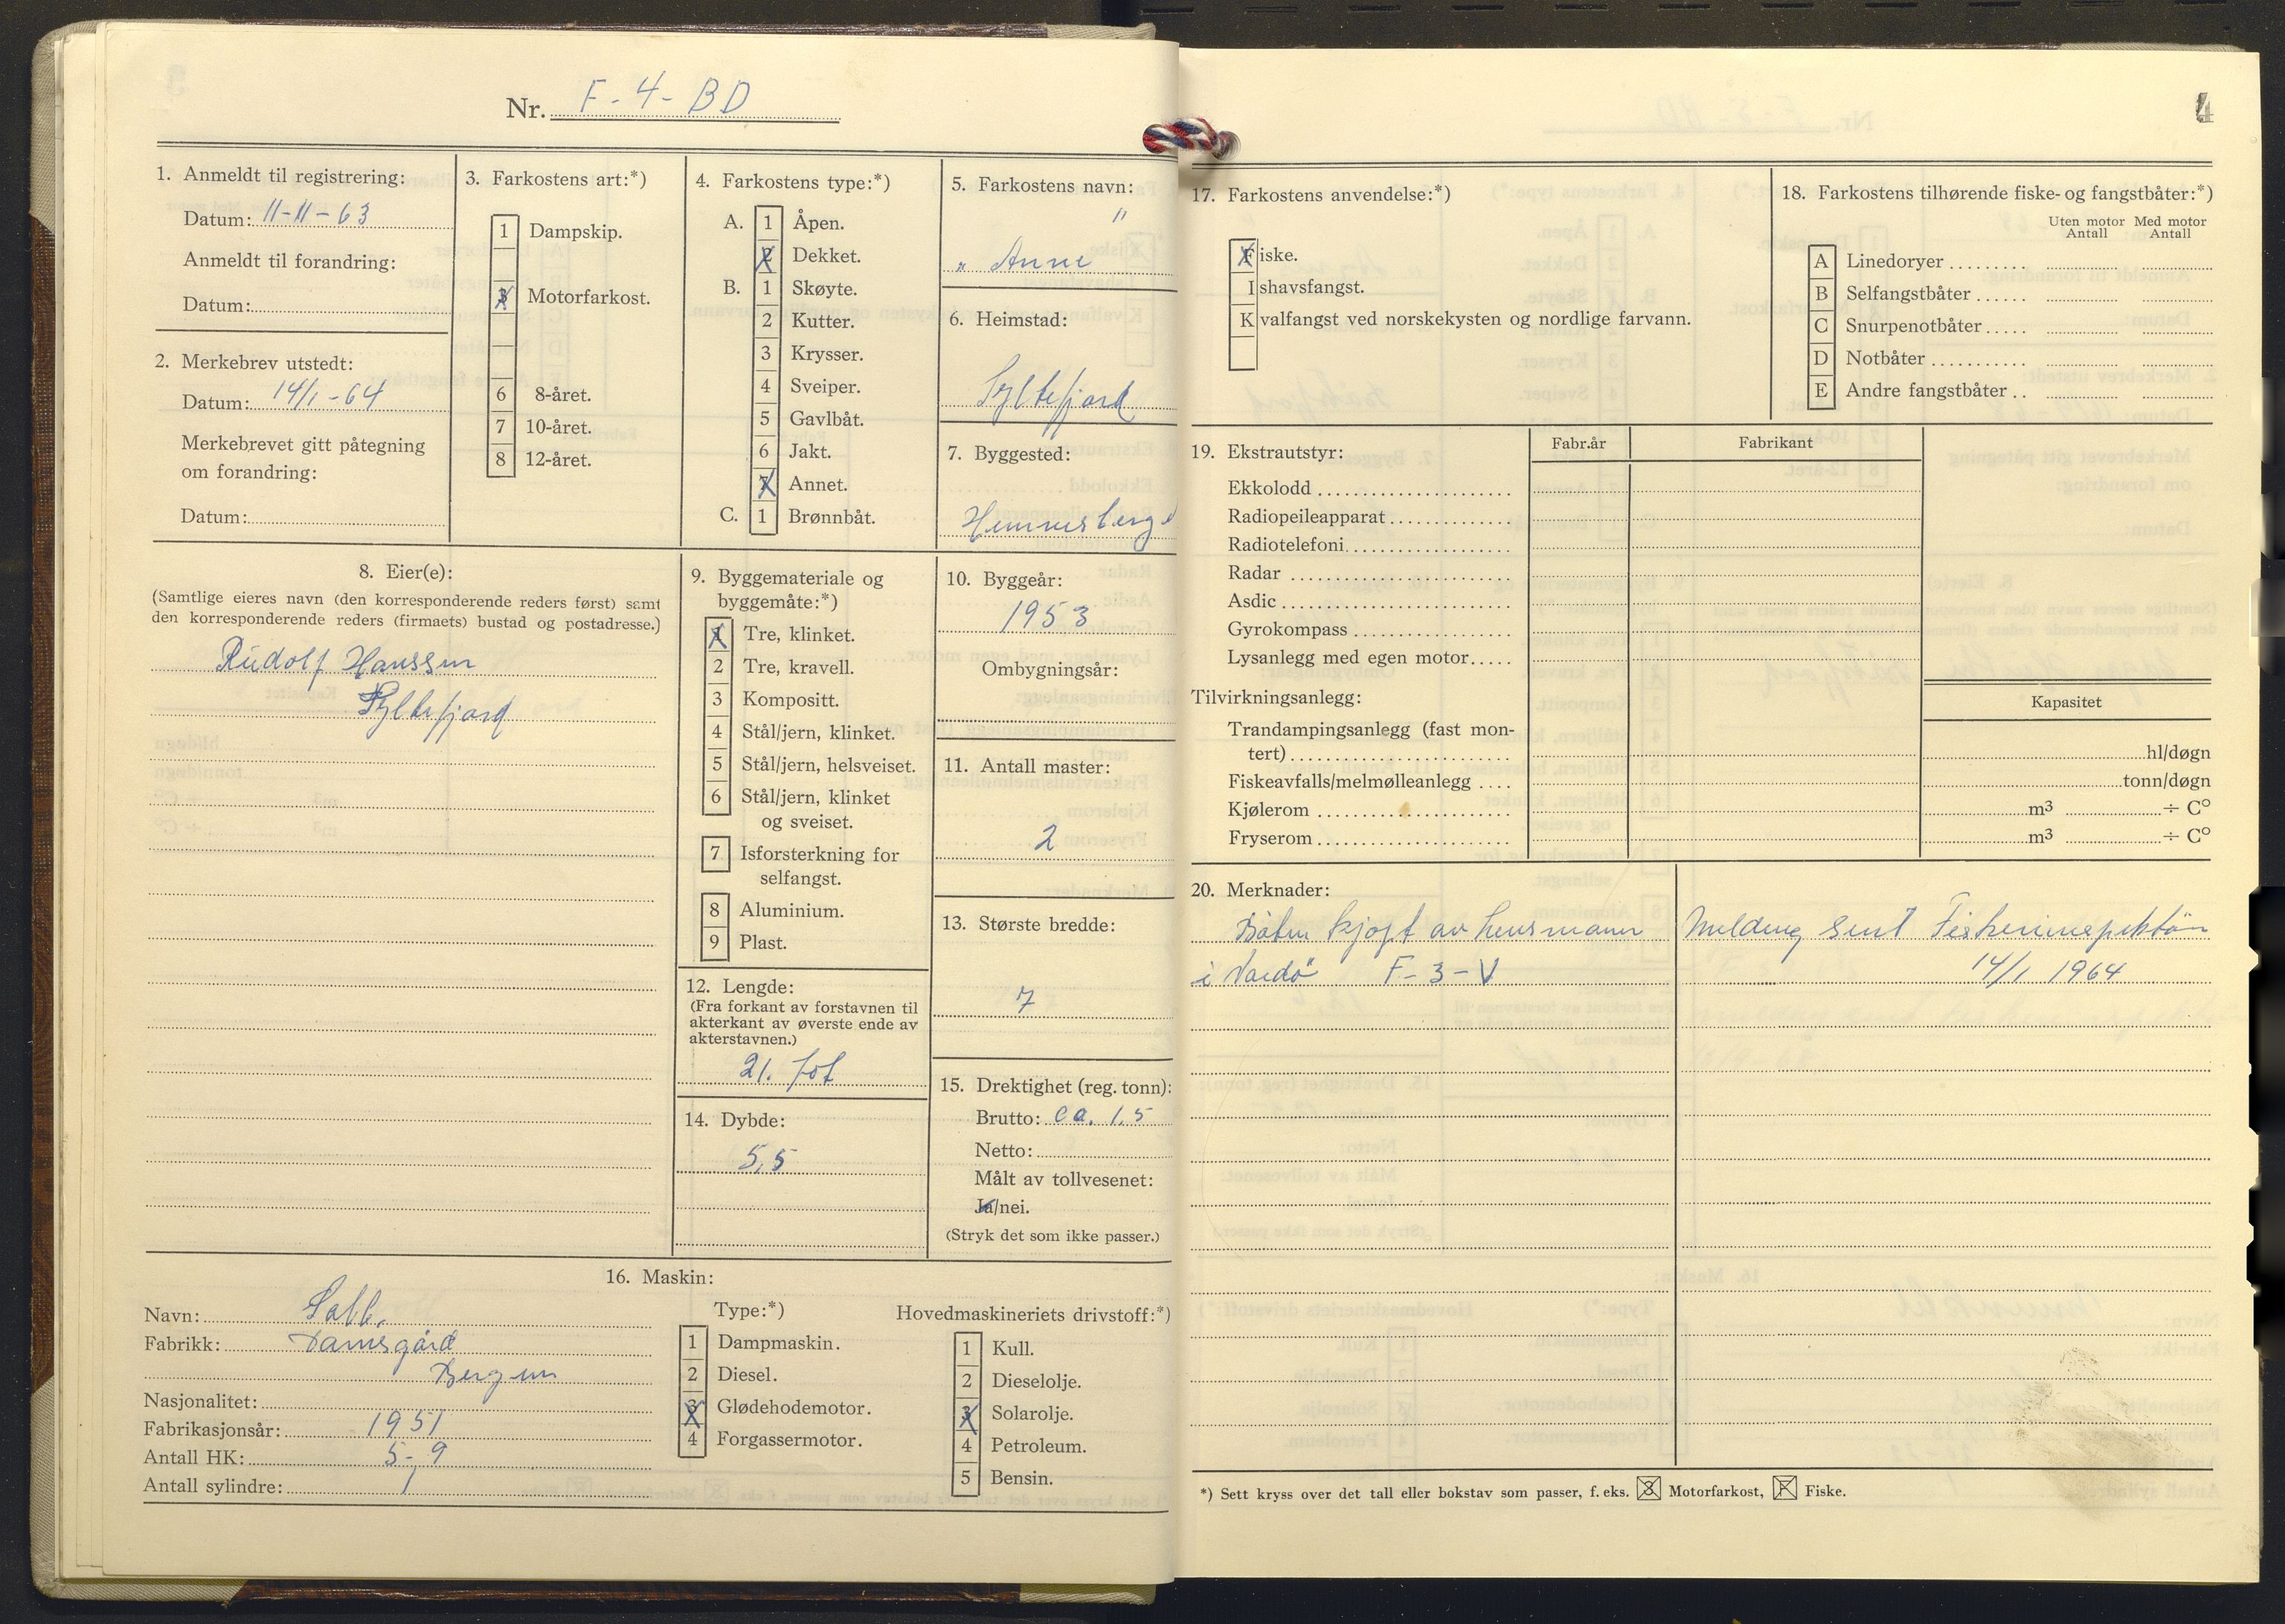 Nr. F-4-BD
1. Anmeldt til registrering:
Datum: 11-11-63
Anmeldt til forandring:
Datum:
2. Merkebrev utstedt:
Datum: 14/1-64
Merkebrevet gitt påtegning
om forandring:
Datum:
3. Farkostens art:*)
1 Dampskip.
3 Motorfarkost.
6 8-året.
7 10-året.
8 12-året.
4. Farkostens type:*)
A. 1 Åpen.
2 Dekket.
B. 1 Skøyte.
2 Kutter.
3 Krysser.
4 Sveiper.
5 Gavlbåt.
6 Jakt.
7 Annet.
C. 1 Brønnbåt.
5. Farkostens navn:
"
„ Anne
6. Heimstad:
Syltefjord
7. Byggested:
Hemnesberget
8. Eier(e):
(Samtlige eieres navn (den korresponderende reders først) samt
den korresponderende reders (firmaets) bustad og postadresse.)
Rudolf Hanssen
Syltefjord
9. Byggemateriale og
byggemåte:*)
1 Tre, klinket.
2 Tre, kravell.
3 Kompositt.
4 Stål/jern, klinket.
5 Stål/jern, helsveiset.
6 Stål/jern, klinket
og sveiset.
7 Isforsterkning for
selfangst.
8 Aluminium.
9 Plast.
10. Byggeår:
1953
Ombygningsår:
11. Antall master:
2
12. Lengde:
(Fra forkant av forstavnen til
akterkant av øverste ende av
akterstavnen.)
21. fot
13. Største bredde:
7
14. Dybde:
5,5
15. Drektighet (reg. tonn):
Brutto: ca. 1,5
Netto:
Målt av tollvesenet:
Ja/nei.
(Stryk det som ikke passer.)
16. Maskin:
Navn: Sabb.
Fabrikk: Damsgård
Bergen
Nasjonalitet:
Fabrikasjonsår: 1951
Antall HK: 5-9
Antall sylindre: 1
Type:*)
1 Dampmaskin.
2 Diesel.
3 Glødehodemotor.
4 Forgassermotor.
Hovedmaskineriets drivstoff:*)
1 Kull.
2 Dieselolje.
3 Solarolje.
4 Petroleum.
5 Bensin.
4
17. Farkostens anvendelse:*)
Fiske.
Ishavsfangst.
Kvalfangst ved norskekysten og nordlige farvann.
18. Farkostens tilhørende fiske- og fangstbåter:*)
Uten motor Med motor
Antall Antall
A Linedoryer
B Selfangstbåter
C Snurpenotbåter
D Notbåter
E Andre fangstbåter
19. Ekstrautstyr: Fabr.år Fabrikant
Ekkolodd
Radiopeileapparat
Radiotelefoni
Radar
Asdic
Gyrokompass
Lysanlegg med egen motor
Tilvirkningsanlegg: Kapasitet
Trandampingsanlegg (fast mon-
tert) hl/døgn
Fiskeavfalls/melmølleanlegg tonn/døgn
Kjølerom m³ ÷ C°
Fryserom m³ ÷ C°
20. Merknader:
Båten kjøpt av lensmann
i Vardö F-3-V
Melding sent Fiskeriinspektön
14/1 1964
*) Sett kryss over det tall eller bokstav som passer, f. eks. 3 Motorfarkost, F Fiske.